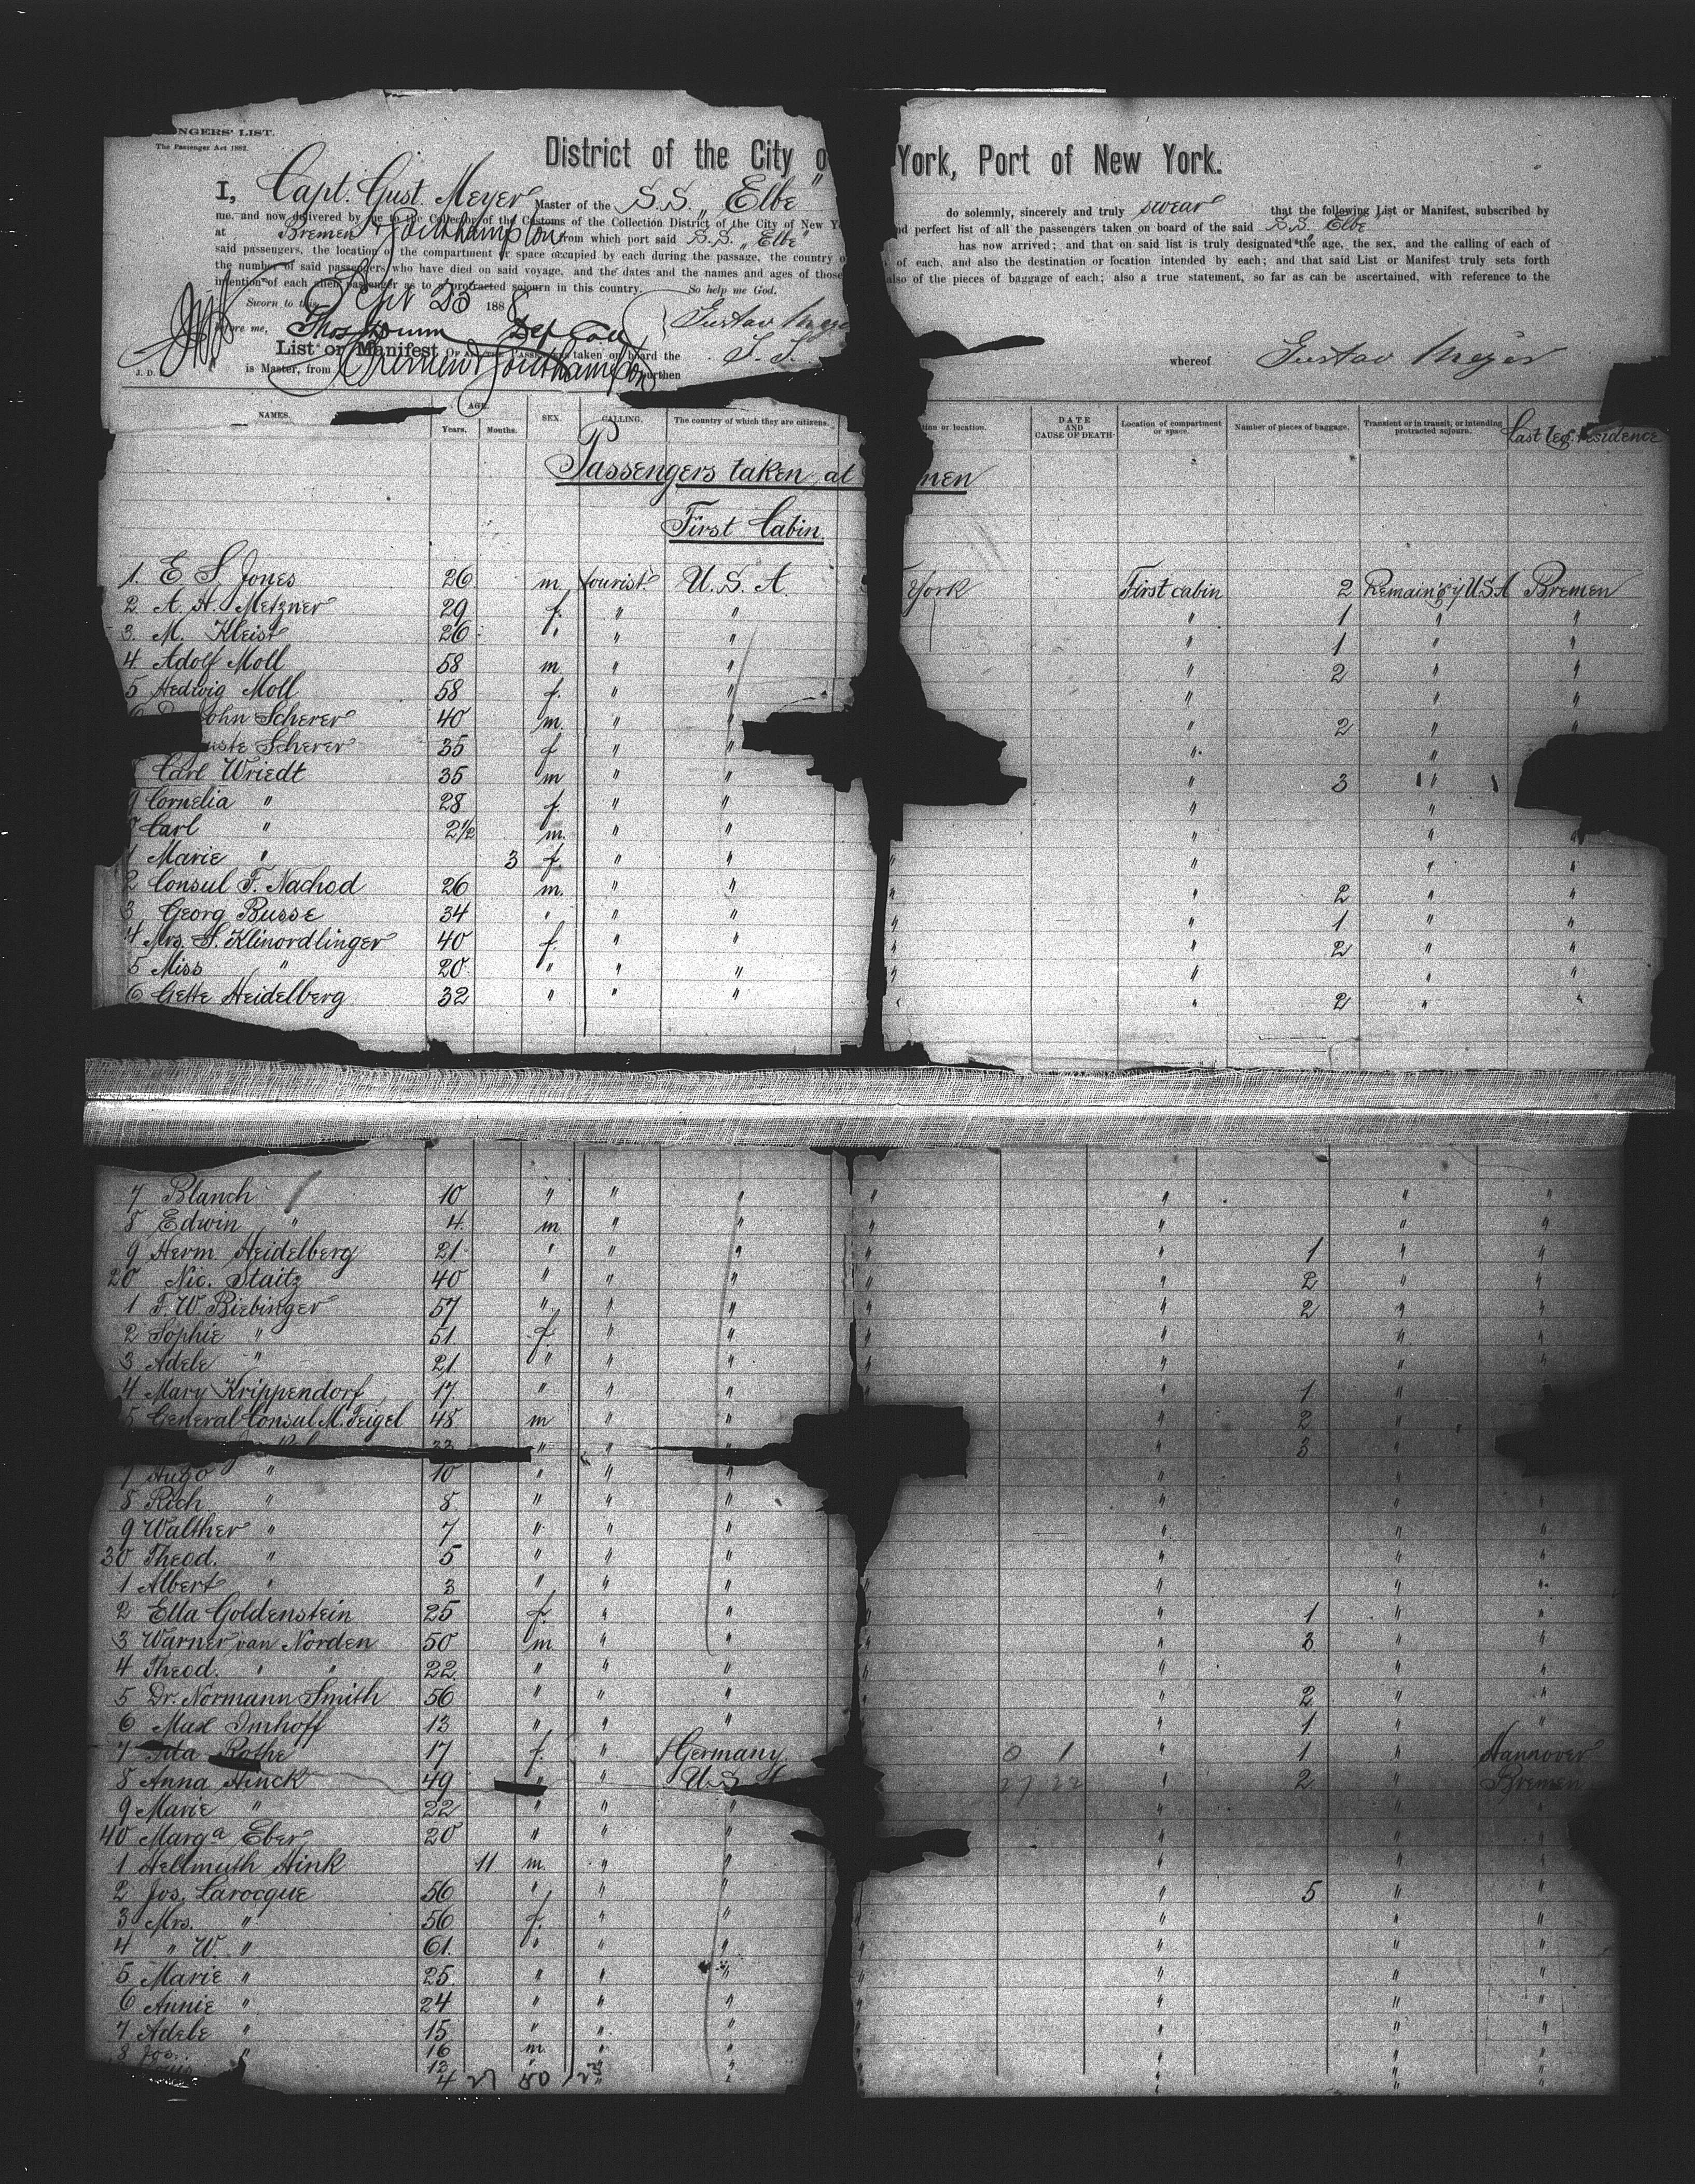 NGERS' LIST.
The Passenger Act 1882.
District of the City o York, Port of New York.
I, Capt. Gust. Meyer Master of the S.S. "Elbe" do solemnly, sincerely and truly swear that the following List or Manifest, subscribed by
me, and now delivered by me to the Collector of the Customs of the Collection District of the City of New Y nd perfect list of all the passengers taken on board of the said S.S. "Elbe"
at Bremen & Southampton from which port said S.S. "Elbe" has now arrived; and that on said list is truly designated the age, the sex, and the calling of each of
said passengers, the location of the compartment or space occupied by each during the passage, the country of each, and also the destination or location intended by each; and that said List or Manifest truly sets forth
the number of said passengers who have died on said voyage, and the dates and the names and ages of those also of the pieces of baggage of each; also a true statement, so far as can be ascertained, with reference to the
intention of each alien passenger as to a protracted sojourn in this country. So help me God.
Sworn to this Sept 25 1888
before me, Thos Dunn Dep Coll Gustav Meye
List or Manifest OF ALL THE PASSENGERS taken on board the S.S. whereof Gustav Meyer
J. D. is Master, from Bremen & Southampton burthen
NAMES. AGE. Years. Months. SEX. CALLING. The country of which they are citizens. tion or location. DATE AND CAUSE OF DEATH. Location of compartment or space. Number of pieces of baggage. Transient or in transit, or intending protracted sojourn. Last leg. residence
Passengers taken at men
First Cabin.
1. E. S. Jones 26 m. tourist U.S.A. York First cabin 2 Remain'g i/ U.S.A Bremen
2. A. H. Metzner 29 f. " " " 1 " "
3. M. Kleist 26 " " " " 1 " "
4 Adolf Moll 58 m. " " " 2 " "
5 Hedwig Moll 58 f. " " " " "
ohn Scherer 40 m. " " " 2 " "
uste Scherer 35 f " " " "
Carl Wriedt 35 m " " " 3 "
9 Cornelia " 28 f. " " " "
Carl " 2½ m. " " " " "
1 Marie " 3 f. " " " " " "
2 Consul F. Nachod 26 m. " " " " 2 " "
3 Georg Busse 34 " " " " " 1 " "
4 Mrs. S. Klinordlinger 40 f. " " " " 2 " "
5 Miss " 20 " " " " " " "
6 Gette Heidelberg 32 " " " " " 2 " "
7 Blanch 10 " " " " " " "
8 Edwin " 4 m " " " " " "
9 Herm Heidelberg 21 " " " " " 1 " "
20 Nic. Staitz 40 " " " " " 2 " "
1 F. W. Biebinger 57 " " " " " 2 " "
2 Sophie " 51 f. " " " " " "
3 Adele " 21 " " " " " " "
4 Mary Krippendorf 17 " " " " " 1 " "
5 General Consul M. Feigel 48 m " " " 2 " "
33 " " " " 3 "
7 Hugo " 10 " " " " " "
8 Rich. " 8 " " " " " "
9 Walther " 7 " " " " " "
30 Theod. " 5 " " " " " "
1 Albert " 3 " " " " " " "
2 Ella Goldenstein 25 f. " " " " 1 " "
3 Warner van Norden 50 m " " " " 3 " "
4 Theod. " " 22 " " " " " "
5 Dr. Normann Smith 56 " " " " 2 " "
6 Max Imhoff 13 " " " " 1 " "
7 Ida Rothe 17 f. " Germany " 1 " Hannover
8 Anna Hinck 49 " " U.S.A. " 2 " Bremen
9 Marie " 22 " " " " " "
40 Marg.a Eber 20 " " " " " "
1 Hellmuth Hink 11 m. " " " " "
2 Jos. Larocque 56 " " " " 5 " "
3 Mrs. " 56 f. " " " " " "
4 " W. " 61 " " " " " " "
5 Marie " 25 " " " " " " "
6 Annie " 24 " " " " " " "
7 Adele " 15 " " " " " " "
8 Jos. " 16 m. " " " " " "
13 " " " " " " "
4 27 50 23